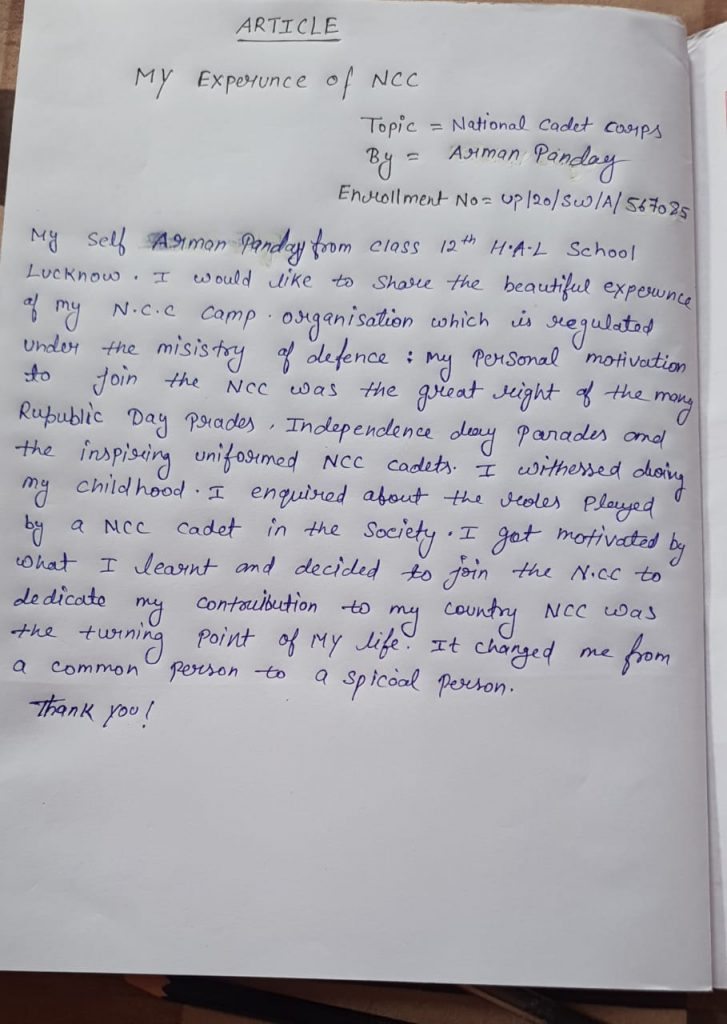 ARTICLE
MY Experunce of NCC
Topic = National Cadet Corps
By = Arman Panday
Enrollment No= UP/20/SW/A/567085
My Self Arman Panday from class 12th H.A.L School
Lucknow. I would like to share the beautiful experunce
of my N.C.C Camp. organisation which is regulated
under the misistry of defence : my Personal motivation
to join the NCC was the great right of the many
Rupublic Day Prades, Independence day Parades and
the inspiring uniformed NCC cadets. I withessed during
my childhood. I enquired about the roles Played
by a NCC cadet in the Society. I got motivated by
what I learnt and decided to join the N.CC to
dedicate my contribution to my country NCC was
the turning Point of MY life. It changed me from
a common Person to a spicoal Person.
Thank you!